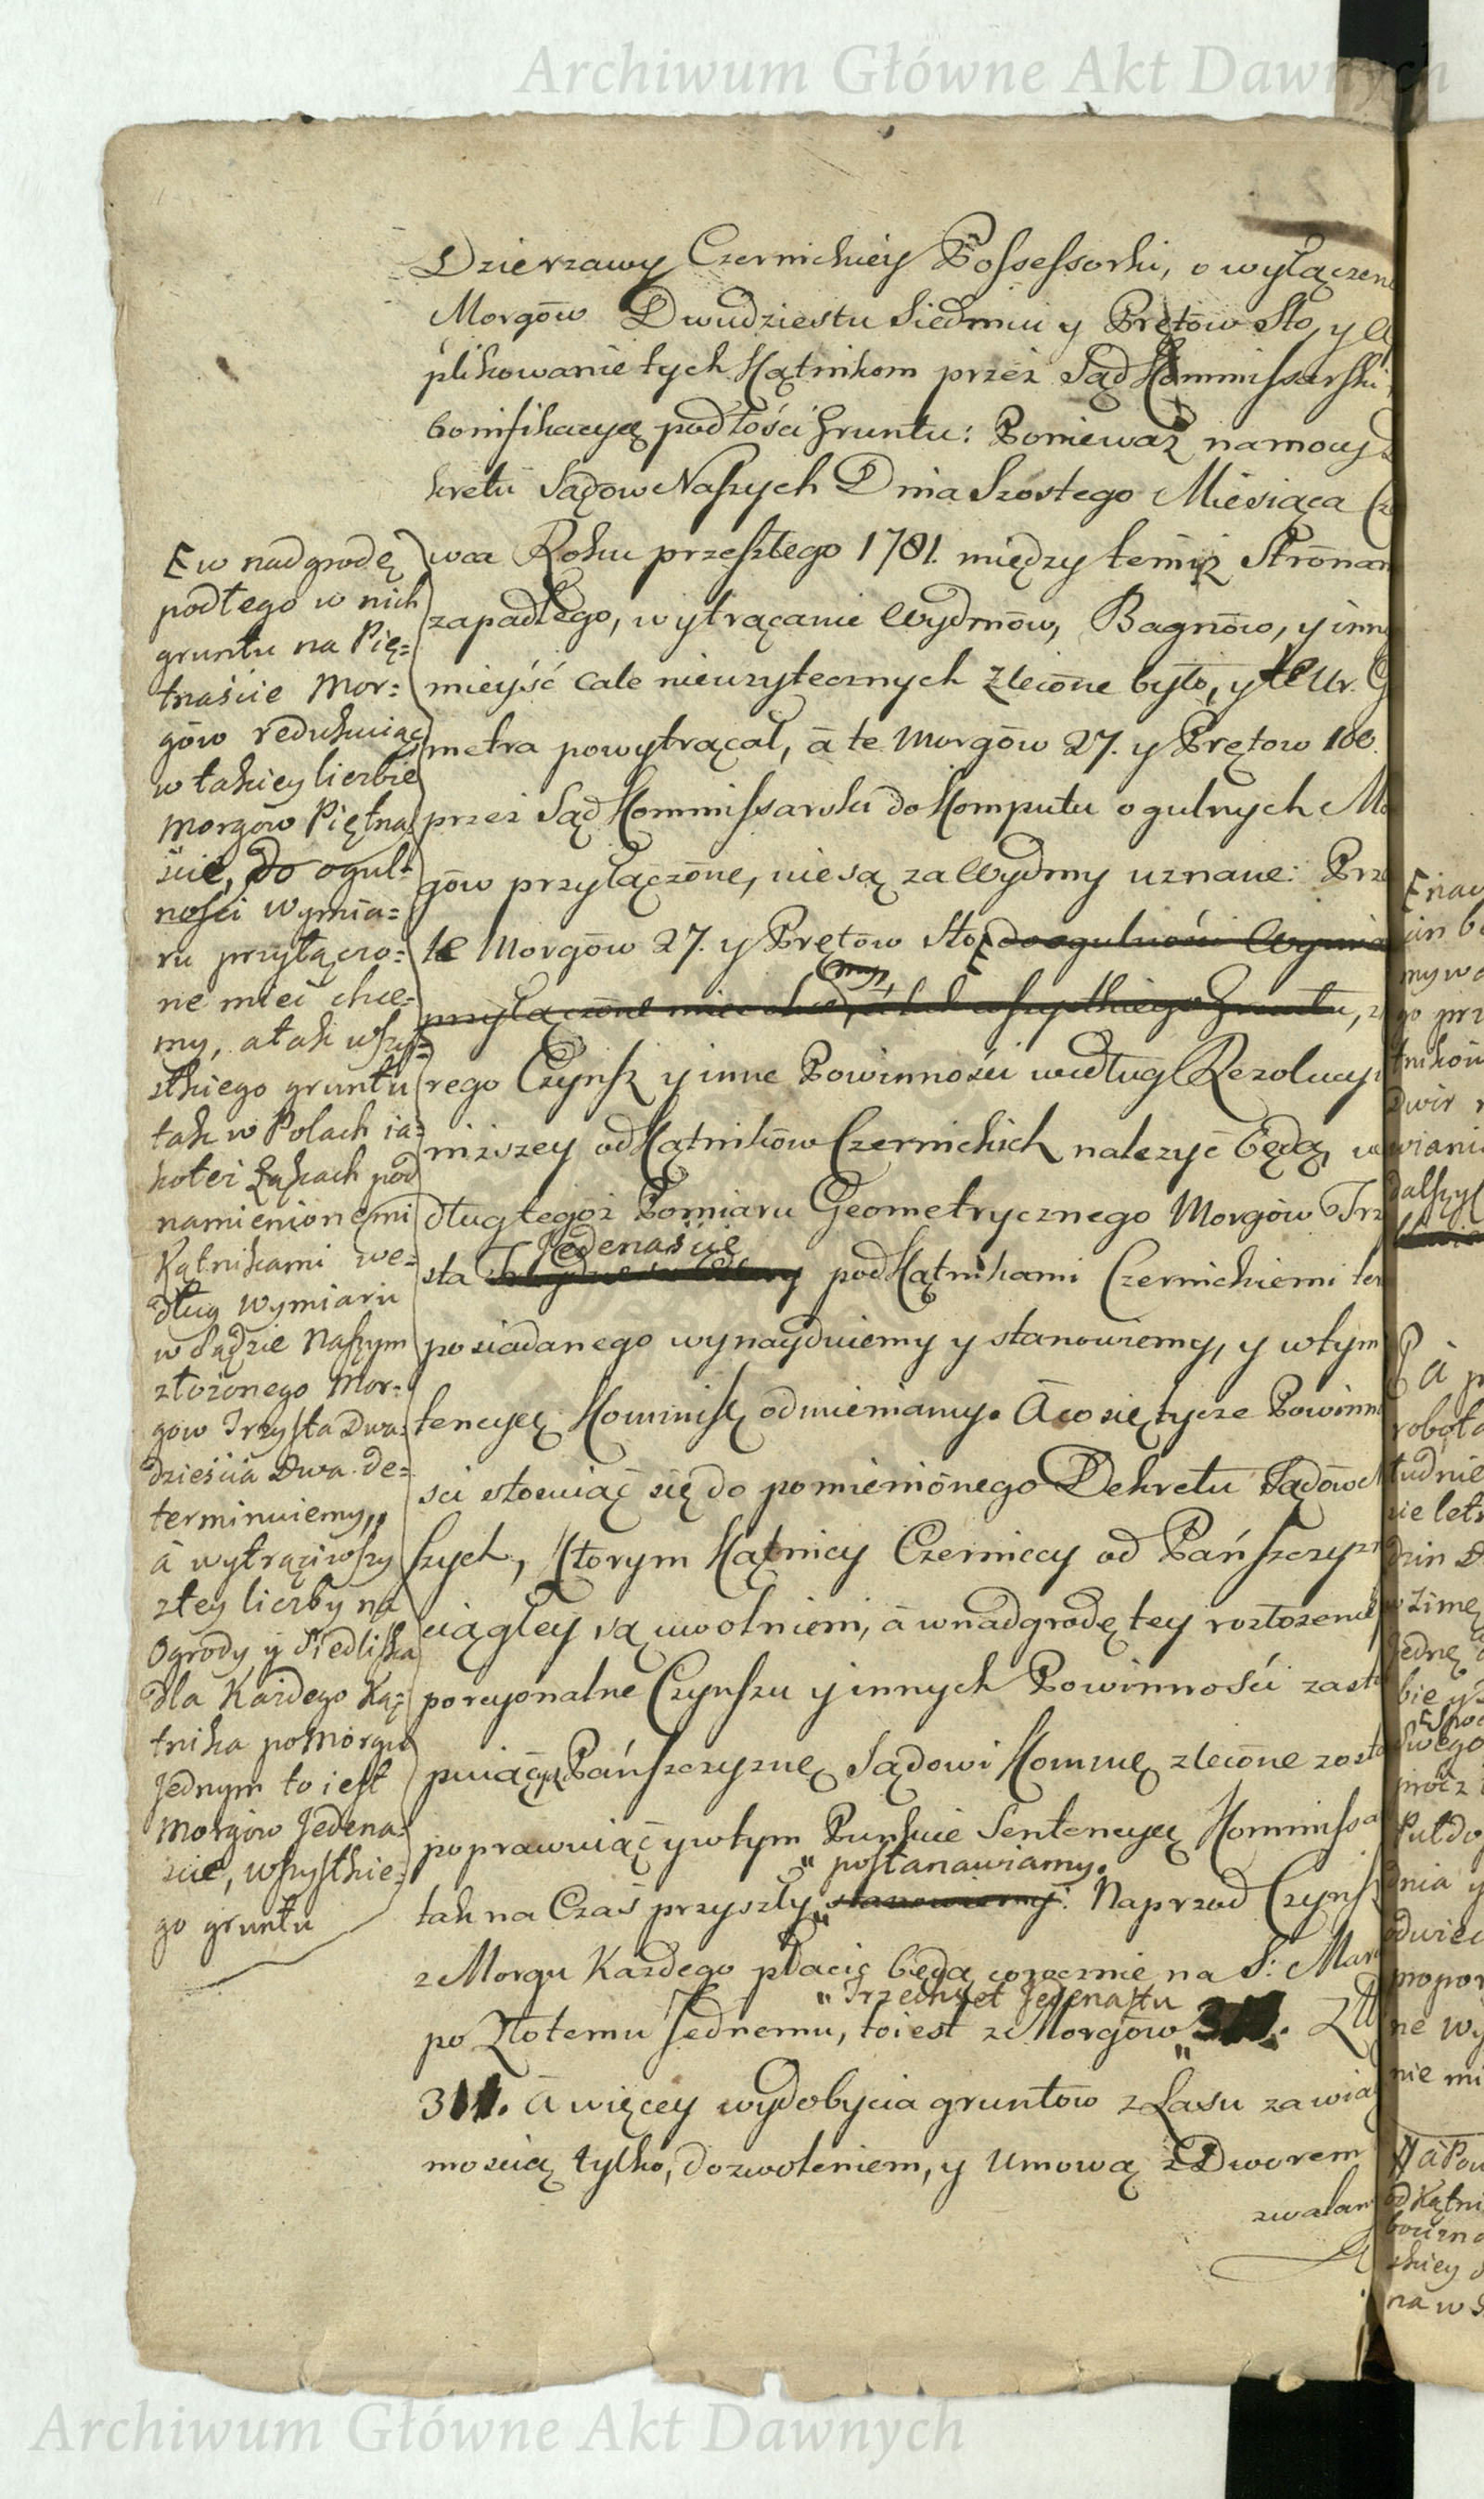 Archiwum Główne Akt Dawnych
Dzierzawy Czernickiey Possessorki, o wyłączen
Morgōw Dwudziestu Siedmiu y Prętow Sto, y A
plikowanie tych Kątnikom przez Sąd Kommissarski
bonifikacyą podłości Gruntu: Ponieważ namocy
kretu Sądow Naszych Dnia Szostego Miesiąca Cz
wca Roku przeszłego 1781. między temiż Strōnam
zapadłego, wytrącanie Wydmōw, Bagnōw, y inny
mieyść cale nieuzytecznych zlecōne było, y te Ur. G
metra powytrącał, ā te Morgōw 27. y Prętow 100.
przez Sąd Kommissarski do Komputu ogulnych Mo
gōw przyłączōne, nie są za Wydmy uznane: Prze
te Morgōw 27. y Prętōw Sto, do ogulności Wymia
my,
przyłączōne mieć chce, a tak wszystkiego Gruntu,
rego Czynsz y inne Powinności według Rezolucyi
niższey od Kątnikōw Czernickich należyć będą, we
dług tegoż Pomiaru Geometrycznego Morgōw Trz
Jedenaście
sta pod Kątnikami Czernickiemi ter
posiadanego wynayduiemy y stanowiemy, y wtym
tencyą Kommisę odmieniamy. Ā co się tycze Powinn
ści stosuiąc się do pomieniōnego Dekretu Sądōw
szych, Ktorym Kątnicy Czerniccy od Pańszczyzn
ciągłey są uwolnieni, ā w nadgrodę tey rozłożenie
porcyonalne Czynszu y innych Powinności zast
puiących Pańszczyznę Sądowi Kommę zlecōne zosta
poprawuiąc y wtym Punkcie Sentencyą Kommissa
" postanawiamy.
tak na Czas przyszły " stanowiemy: Naprzod Czynsz
z Morgu Każdego płacić będą corocznie na S: Mar
" Trzechset Jedenastu
po Złotemu Jednemu, to iest z Morgōw " 311. Zł
311. ā więcey wydobycia gruntōw z Lasu za wia
mością tylko, dozwoleniem, y Umową z Dworem
zwalam
E w nadgrodę
podłego w nich
gruntu na Pię=
tnaście Mor=
gōw redukuiąc
w takiey liczbie
Morgow Piętna
ście, do ogul=
ności Wymia=
ru przyłączo=
ne mieć chce=
my, a tak wszy=
stkiego gruntu
tak w Polach ia=
ko też Łąkach pod
namienionęmi
Kątnikami we=
dług Wymiaru
w Sądzie Naszym
złożonego Mor=
gow Trzysta Dwa=
dzieścia Dwa de=
terminuiemy,,
ā wytrąciwszy
z tey liczby na
Ogrody y Siedliska
dla Każdego Ką=
tnika po Morgu
Jednym to iest
Morgow Jedena=
ście, wszystkie=
go gruntu
Archiwum Główne Akt Dawnych